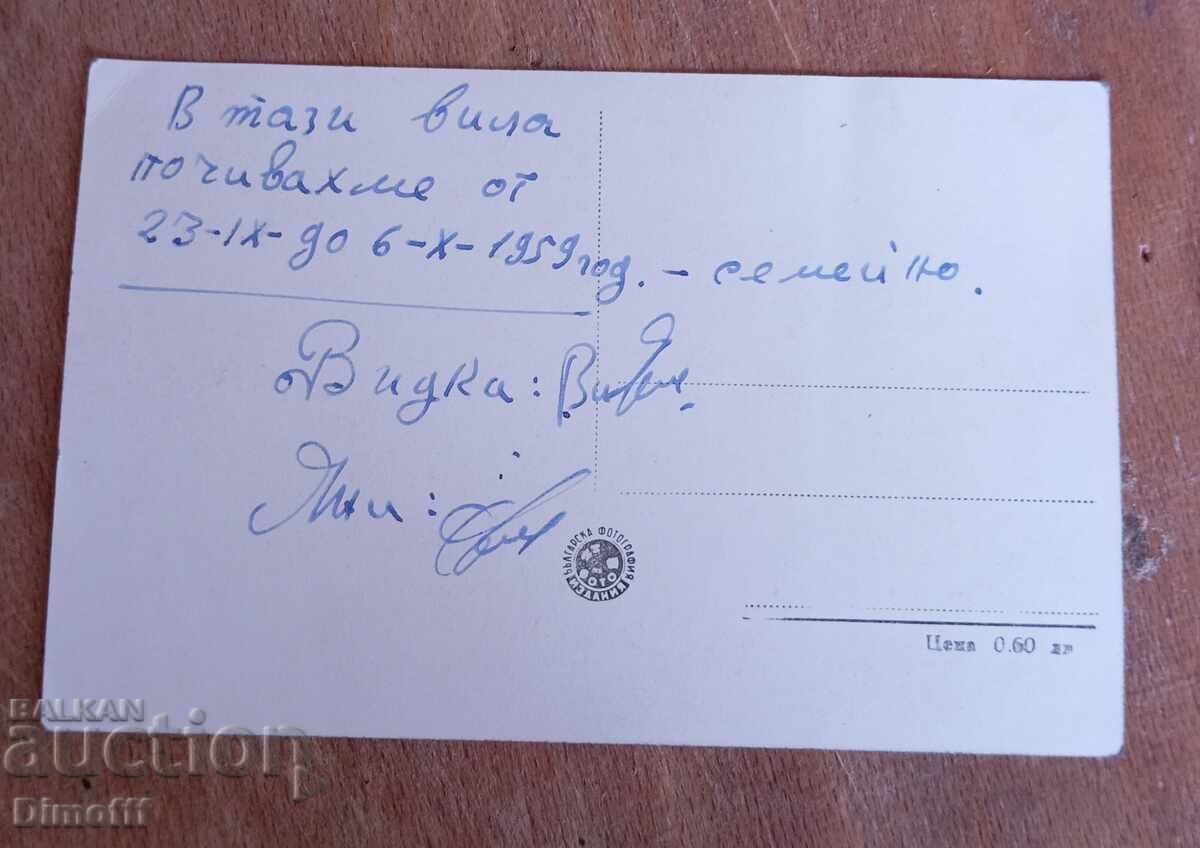 В тази вила
почивахме от
23-IX- до 6-X-1959 год. - семейно.
Видка:
Яни:
БЪЛГАРСКА ФОТОГРАФИЯ
ФОТО
ИЗДАНИЕ
Цена 0.60 лв
BALKAN
auction
Dimofff